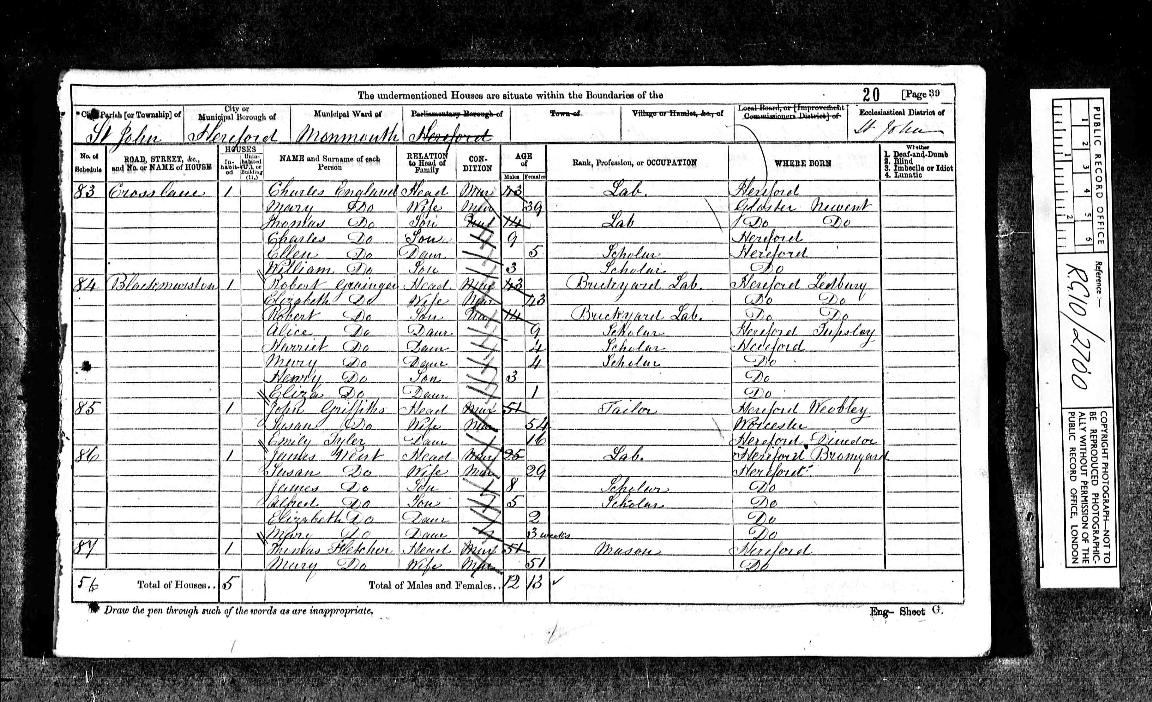 The undermentioned Houses are situate within the Boundaries of the
20 [Page 39
Parish [or Township] of
City or Municipal Borough of
Municipal Ward of
Parliamentary Borough of
Town of
Village or Hamlet, &c., of
Local Board, or [Improvement Commissioners District] of
Ecclesiastical District of
St John Hereford Monmouth Hereford St John
No. of Schedule
ROAD, STREET, &c., and No. or NAME of HOUSE
HOUSES
In-habit-ed
Unin-habited (U.), or Building (B.)
NAME and Surname of each Person
RELATION to Head of Family
CON-DITION
AGE of
Males Females
Rank, Profession, or OCCUPATION
WHERE BORN
Whether
1. Deaf-and-Dumb
2. Blind
3. Imbecile or Idiot
4. Lunatic
83 Cross lane 1 Charles England Head Mar 43 Lab. Hereford
Mary Do Wife Mar 39 Newent
Thomas Do Son 14 Lab Do Do
Charles Do Son 9 Hereford
Ellen Do Daur 5 Scholar Hereford
William Do Son 3 Scholar Do
84 Blackmarston 1 Robert Head Mar 43 Brickyard Lab. Hereford Ledbury
Elizabeth Do Wife Mar 43 Do Do
Robert Do Son 14 Brickyard Lab. Do Do
Alice Do Daur 9 Scholar Hereford Tupsley
Harriet Do Daur 4 Scholar Hereford
Mary Do Daur 4 Scholar Do
Henry Do Son 3 Do
Eliza Do Daur 1 Do
85 1 John Griffiths Head Mar 51 Tailor Hereford Weobley
Susan Do Wife Mar 54 Worcester
Emily Tyler Daur 16 Hereford Dinedor
86 1 James Head Mar 25 Lab. Hereford Bromyard
Susan Do Wife Mar 29 Hereford
James Do Son 8 Scholar Do
Alfred Do Son 5 Scholar Do
Elizabeth Do Daur 2 Do
Mary Do Daur 3 weeks Do
87 1 Thomas Fletcher Head Mar 51 Mason Hereford
Mary Do Wife Mar 51 Do
56 Total of Houses.. 5 Total of Males and Females.. 12 13
* Draw the pen through such of the words as are inappropriate.
Eng- Sheet G.
PUBLIC RECORD OFFICE
1 2 3 4 5 6
1 2
Reference :-
RG10/2700
COPYRIGHT PHOTOGRAPH-NOT TO
BE REPRODUCED PHOTOGRAPHIC-
ALLY WITHOUT PERMISSION OF THE
PUBLIC RECORD OFFICE, LONDON